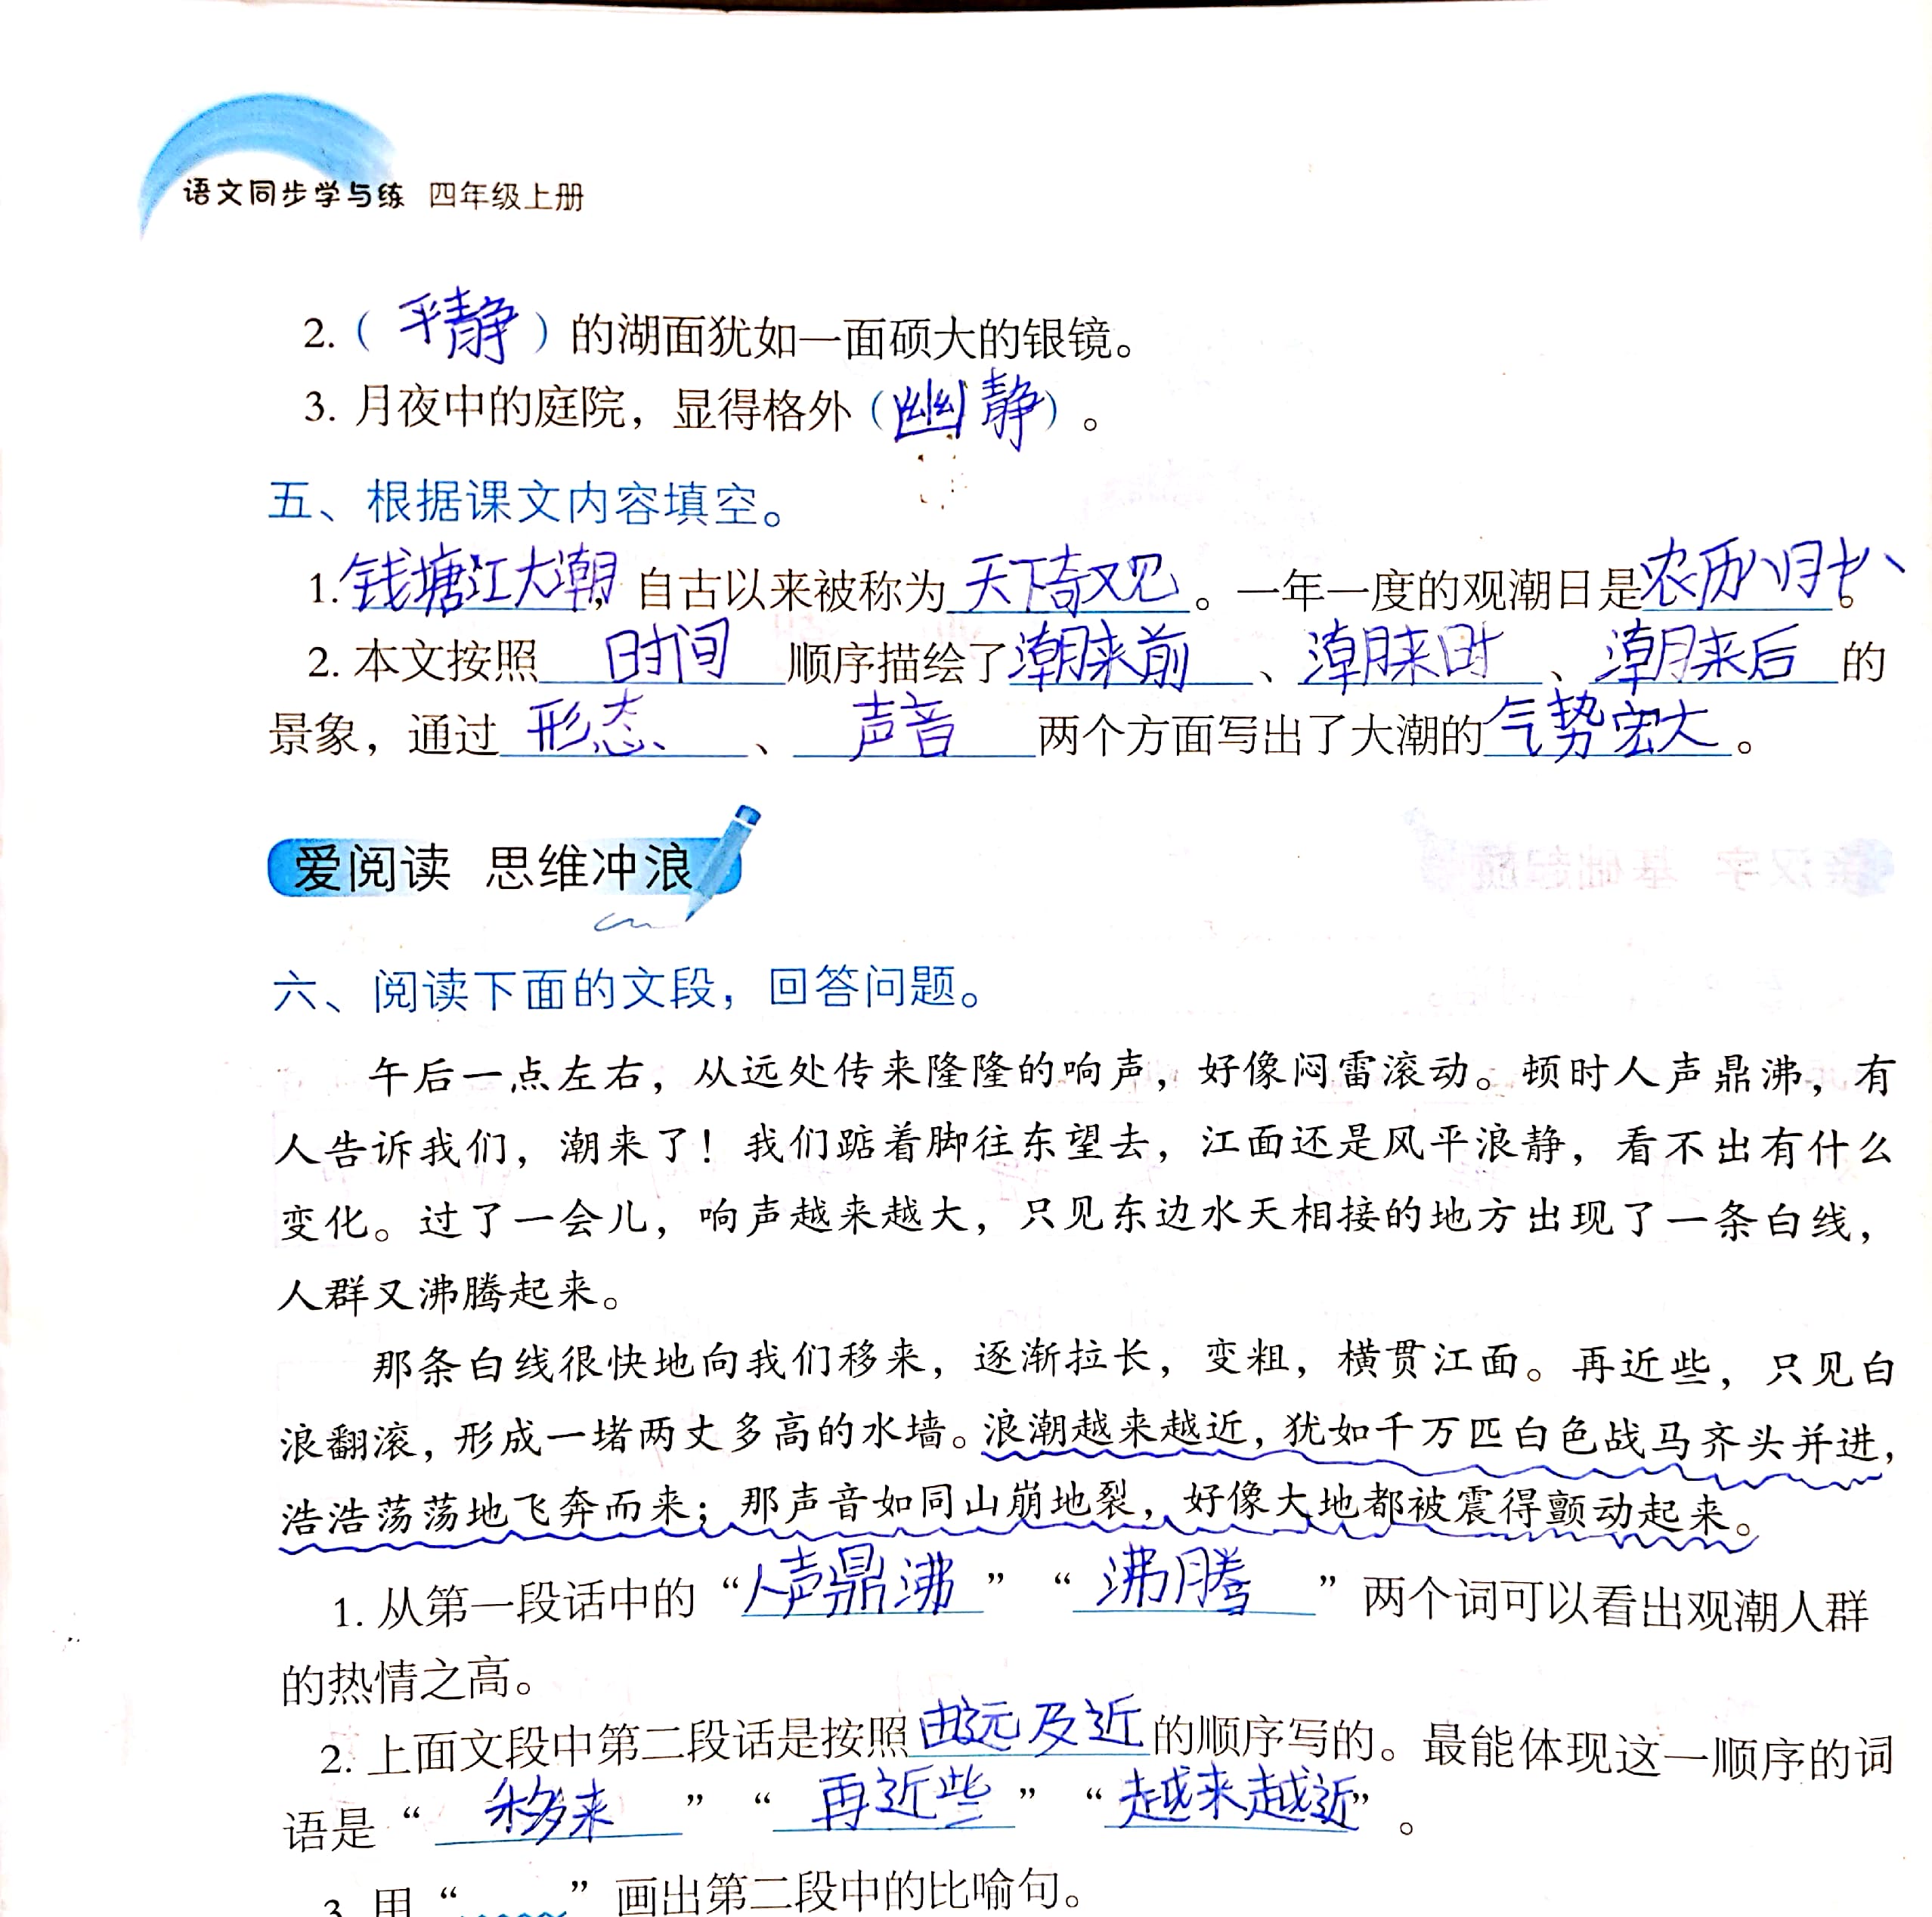 语文同步学与练 四年级上册
2.（平静）的湖面犹如一面硕大的银镜。
3. 月夜中的庭院，显得格外（幽静）。
五、根据课文内容填空。
1.钱塘江大潮，自古以来被称为天下奇观。一年一度的观潮日是农历八月十八。
2. 本文按照时间顺序描绘了潮来前、潮来时、潮来后的
景象，通过形态、声音两个方面写出了大潮的气势宏大。
爱阅读 思维冲浪
六、阅读下面的文段，回答问题。
午后一点左右，从远处传来隆隆的响声，好像闷雷滚动。顿时人声鼎沸，有
人告诉我们，潮来了！我们踮着脚往东望去，江面还是风平浪静，看不出有什么
变化。过了一会儿，响声越来越大，只见东边水天相接的地方出现了一条白线，
人群又沸腾起来。
那条白线很快地向我们移来，逐渐拉长，变粗，横贯江面。再近些，只见白
浪翻滚，形成一堵两丈多高的水墙。浪潮越来越近，犹如千万匹白色战马齐头并进，
浩浩荡荡地飞奔而来；那声音如同山崩地裂，好像大地都被震得颤动起来。
1. 从第一段话中的“人声鼎沸”“沸腾”两个词可以看出观潮人群
的热情之高。
2. 上面文段中第二段话是按照由远及近的顺序写的。最能体现这一顺序的词
语是“移来”“再近些”“越来越近”。
3. 用“﹏﹏”画出第二段中的比喻句。